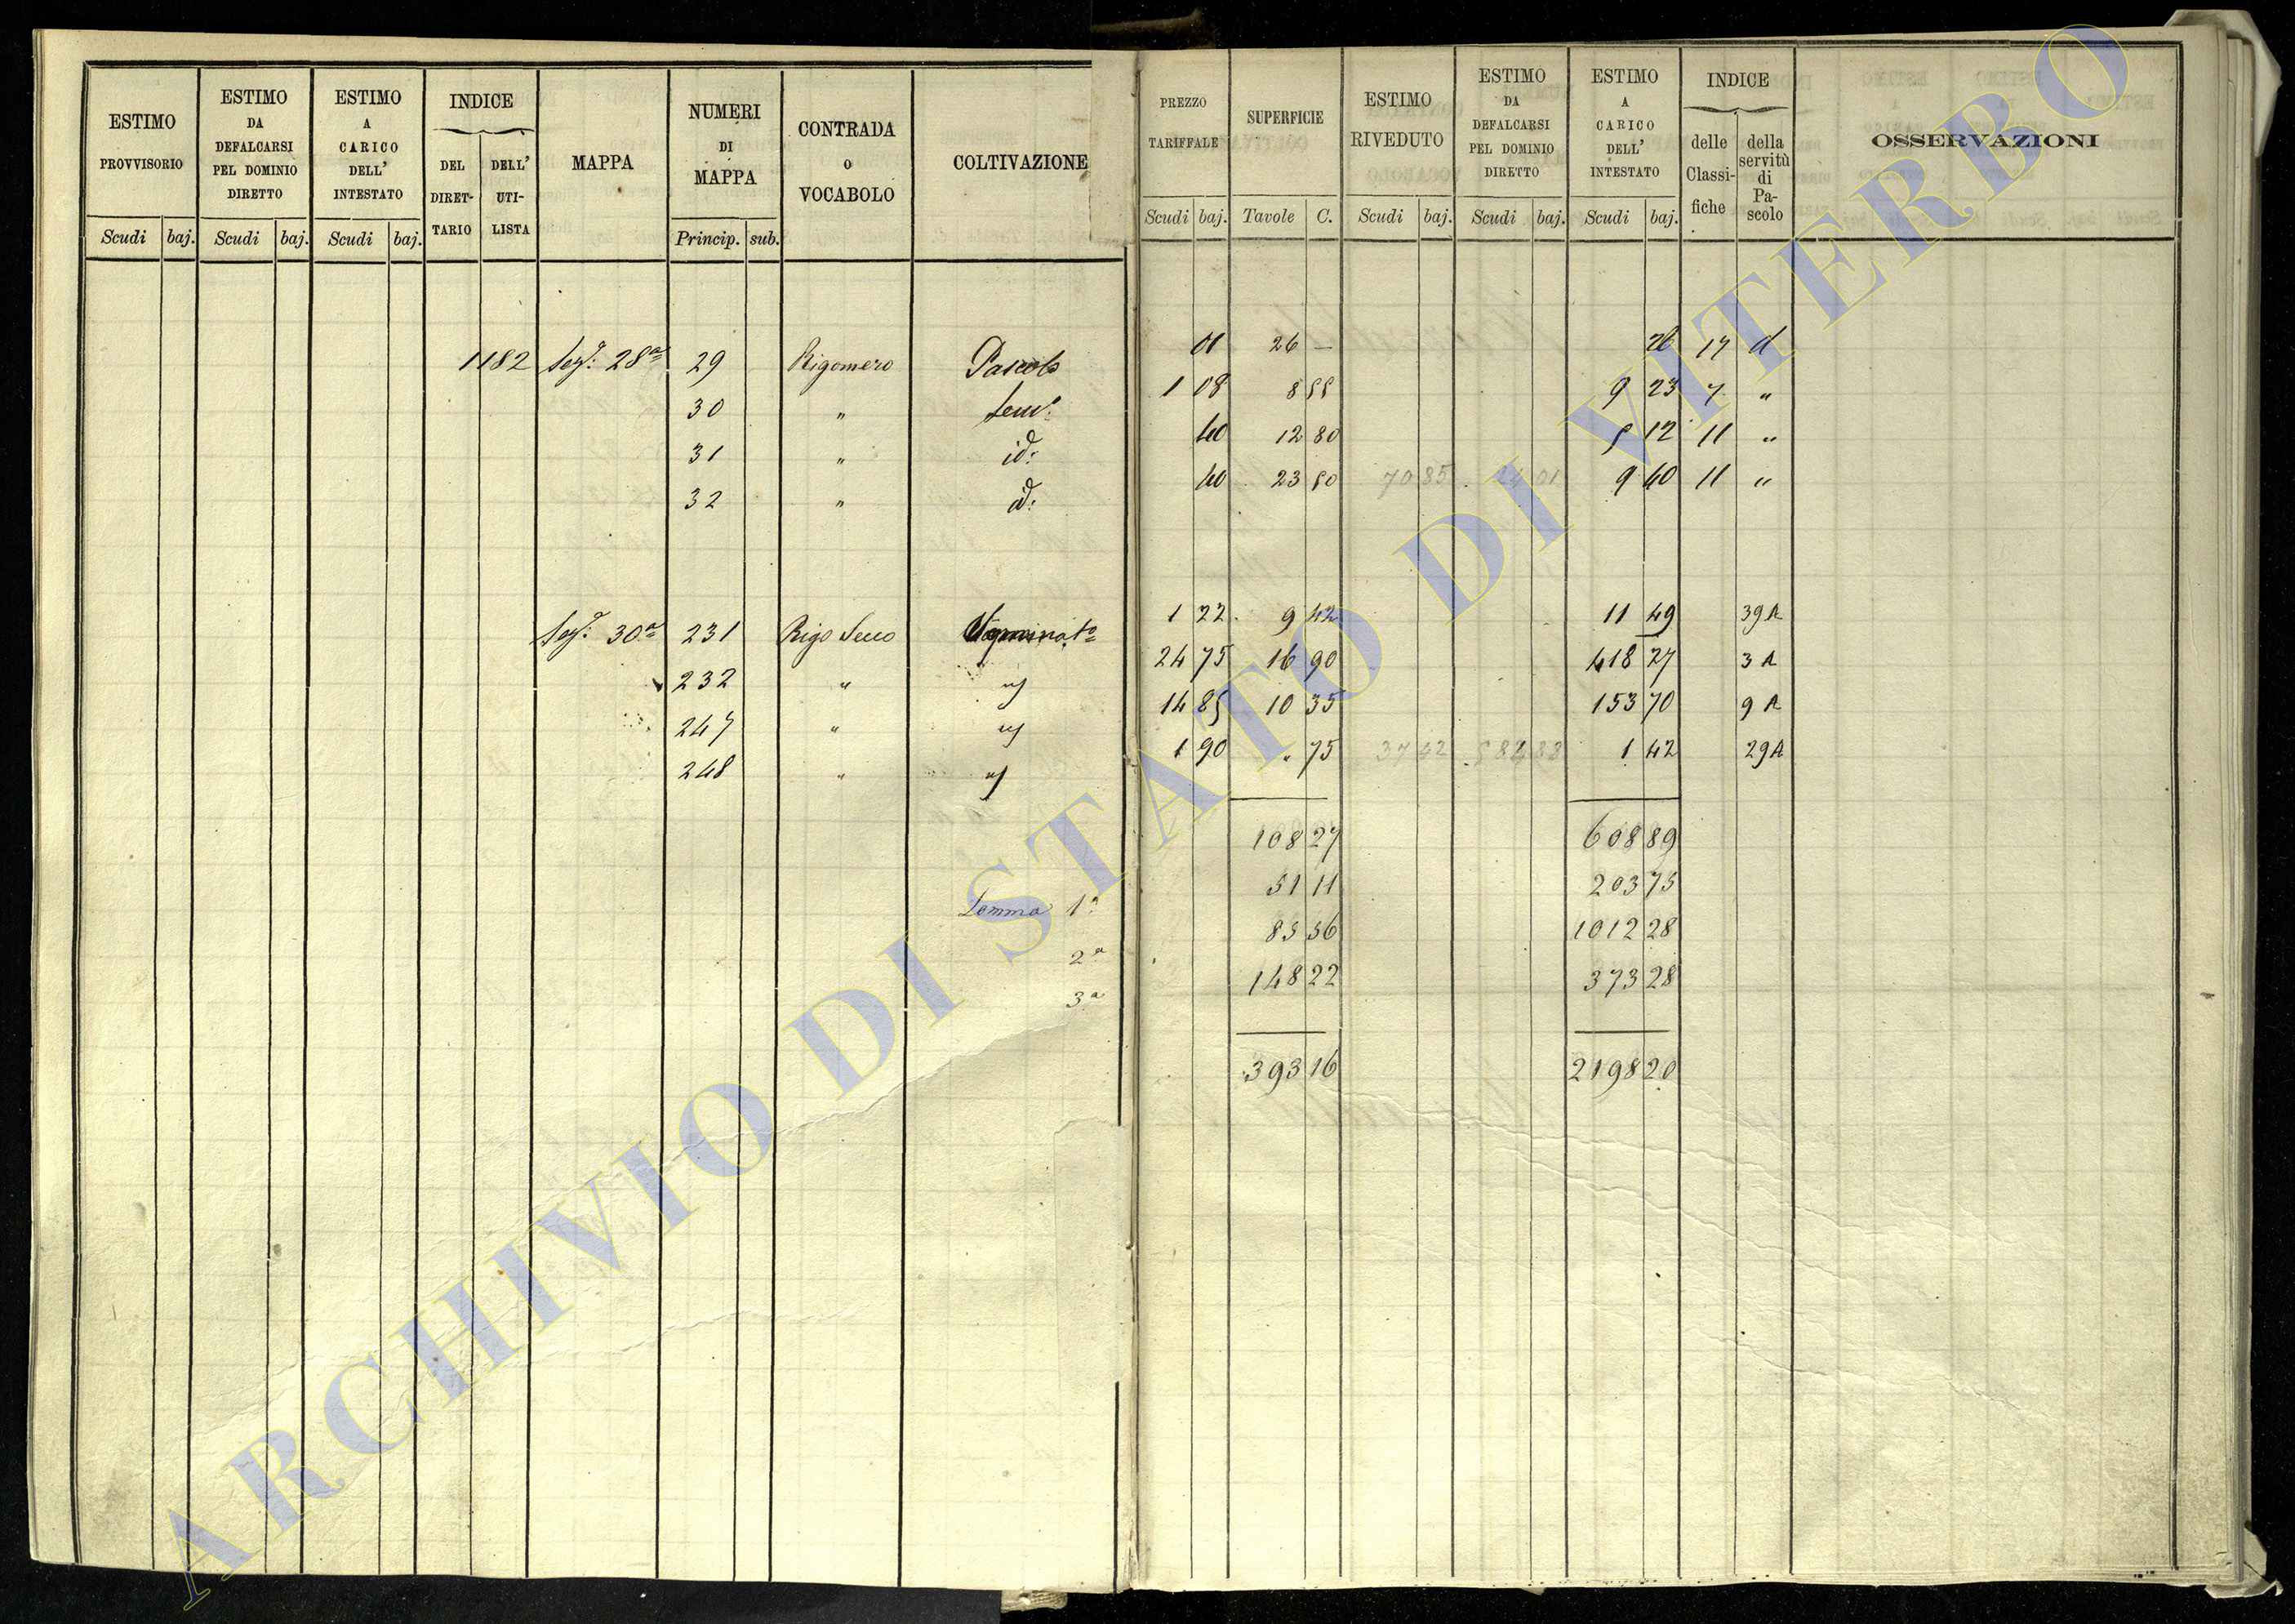 ESTIMO PROVVISORIO
Scudi baj.
ESTIMO DA DEFALCARSI PEL DOMINIO DIRETTO
Scudi baj.
ESTIMO A CARICO DELL' INTESTATO
Scudi baj.
INDICE
DEL DIRET-
TARIO
DELL' UTI-
LISTA
MAPPA
NUMERI DI MAPPA
Princip. sub.
CONTRADA o VOCABOLO
COLTIVAZIONE
PREZZO TARIFFALE
Scudi baj.
SUPERFICIE
Tavole C.
ESTIMO RIVEDUTO
Scudi baj.
ESTIMO DA DEFALCARSI PEL DOMINIO DIRETTO
Scudi baj.
ESTIMO A CARICO DELL' INTESTATO
Scudi baj.
INDICE
delle Classi-
fiche
della servitù di Pa-
scolo
OSSERVAZIONI
1182 Sez. 28a 29 Rigomero Pascolo 01 26 — 26 17 d
30 " Sem. 1 08 8 55 9 23 7 "
31 " id: 40 12 80 5 12 11 "
32 " id: 40 23 50 70 85 24 01 9 40 11 "
Sez. 30a 231 Rigo Secco 1 22 9 42 11 49 39 A
232 " 24 75 16 90 418 27 3 A
247 " 14 85 10 35 153 70 9 A
248 " 1 90 " 75 37 42 584 88 1 42 29 A
108 27 608 89
51 11 203 75
Somma 1a 85 56 1012 28
2a 148 22 373 28
3a
393 16 2198 20
ARCHIVIO DI STATO DI VITERBO